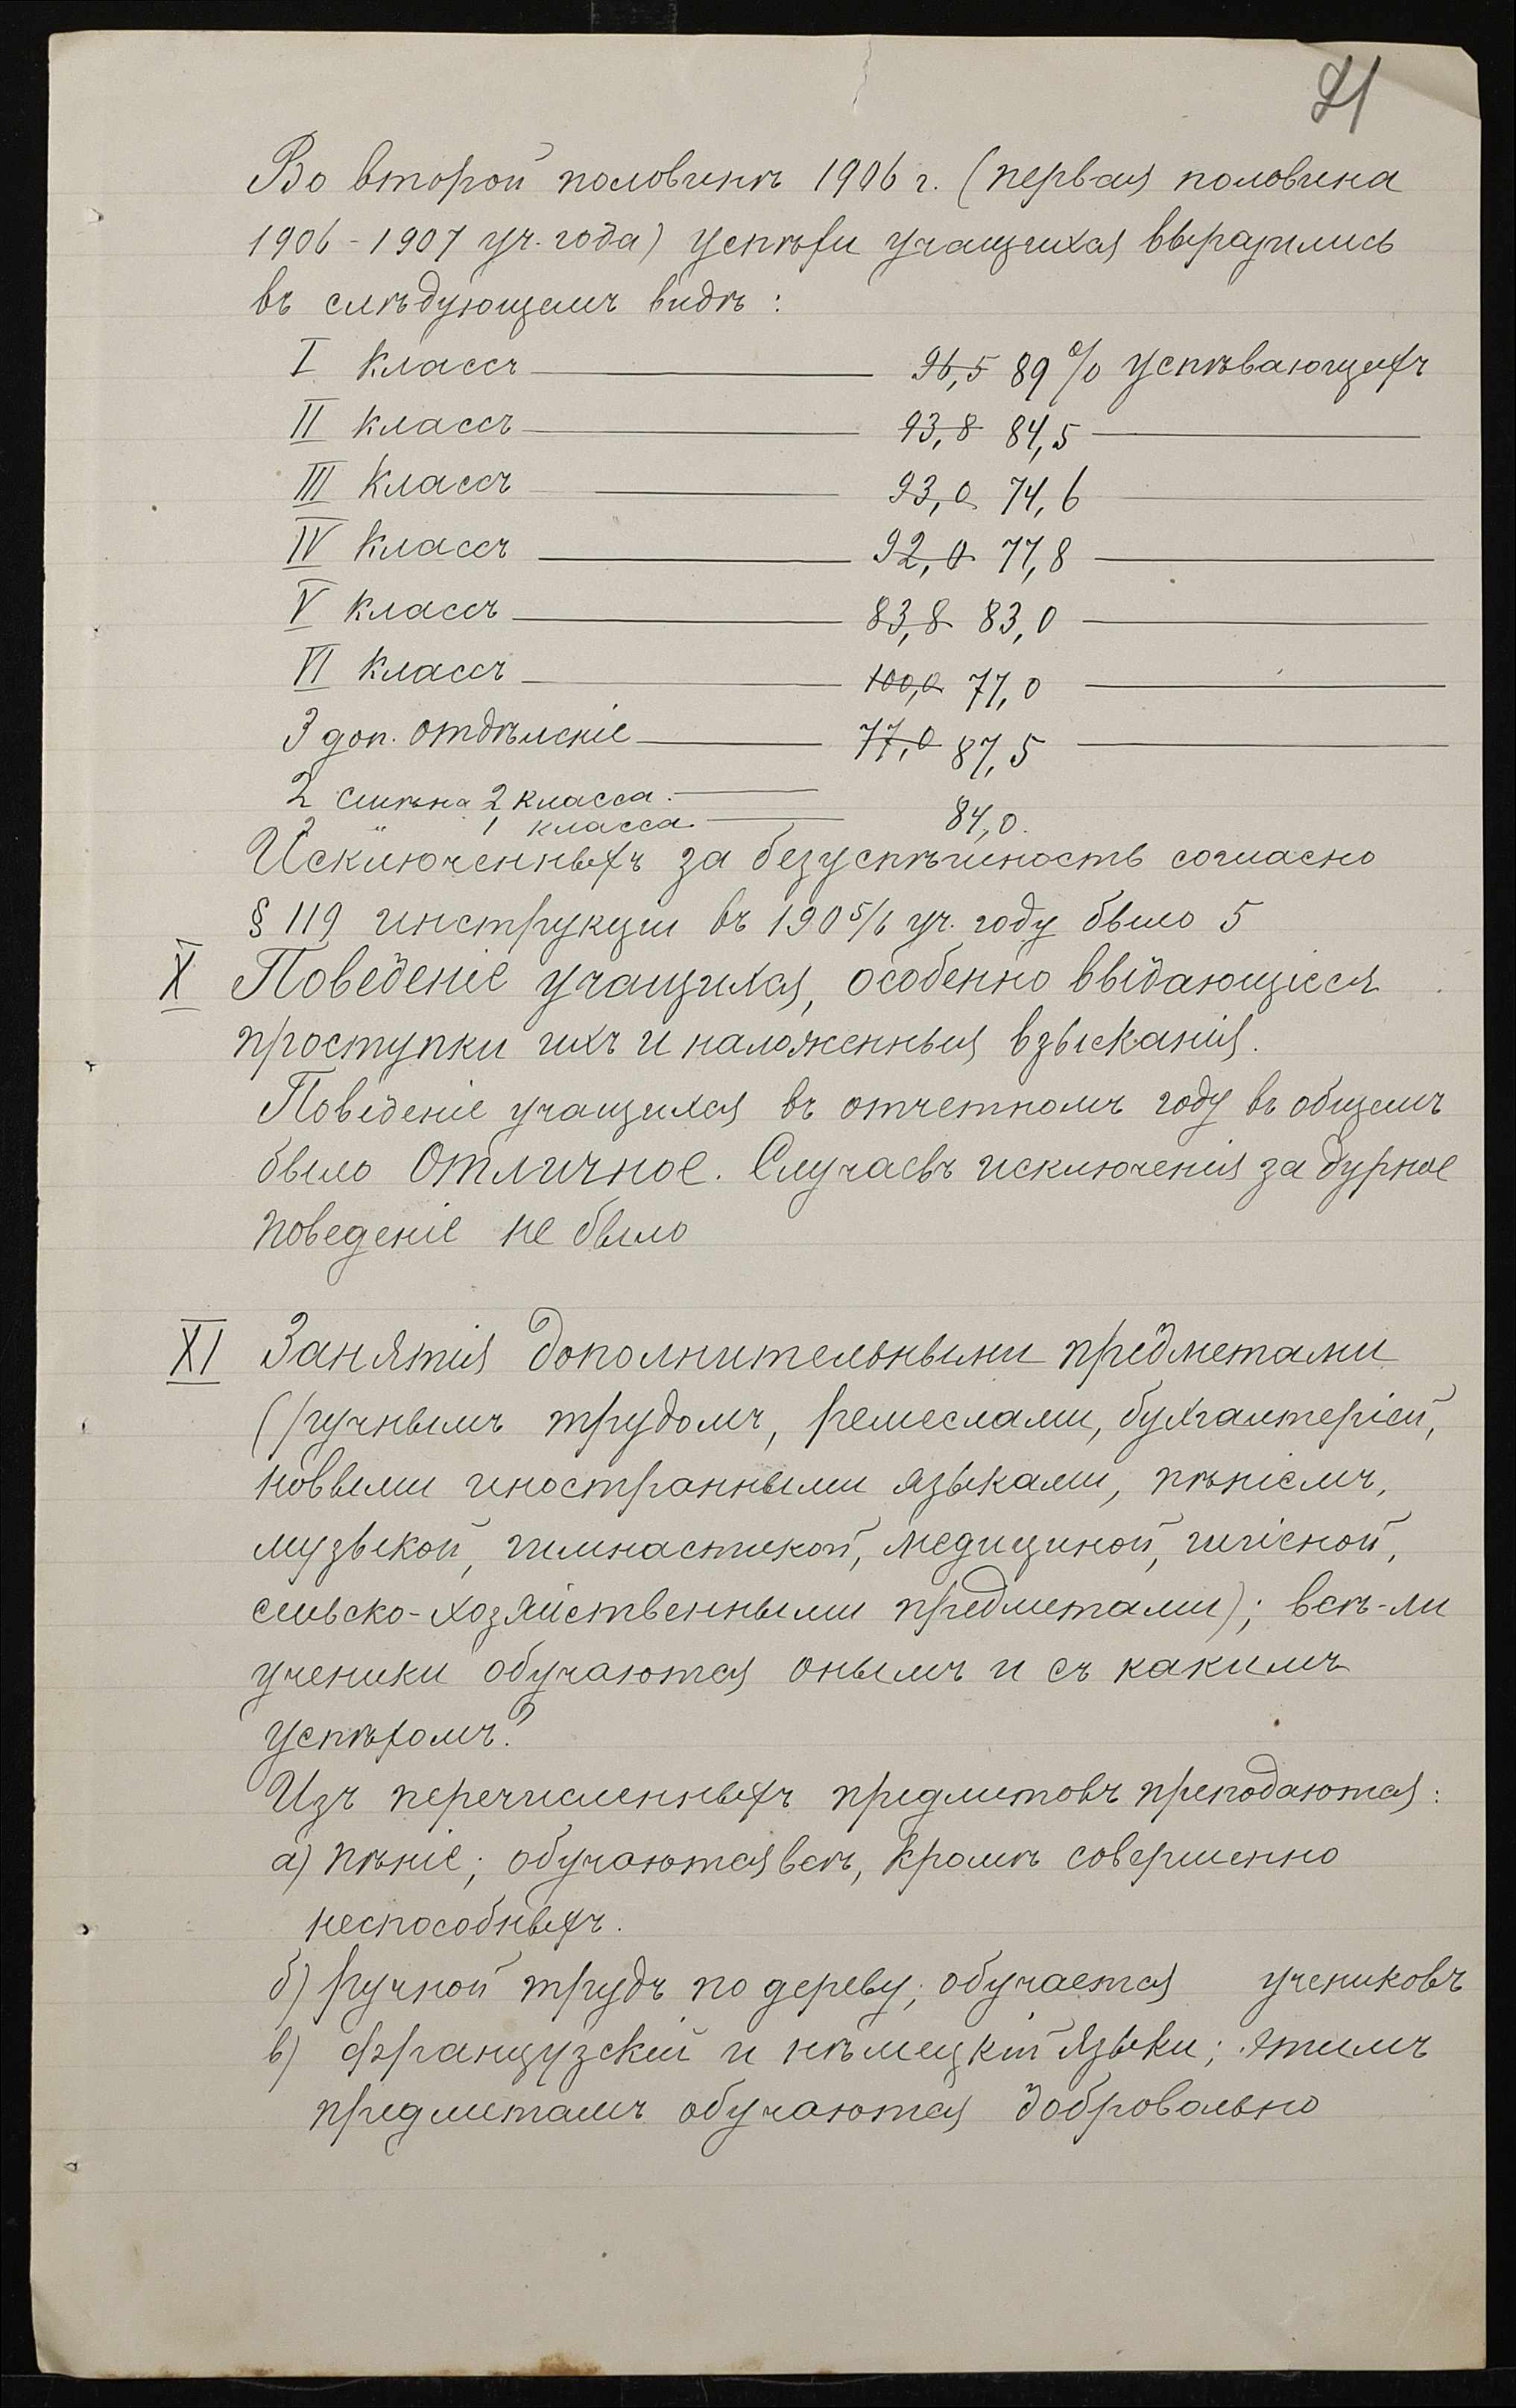 21
Во второй половинѣ 1906 г. (первая половина
1906-1907 уч. года) успѣхи учащихся выразились
въ слѣдующемъ видѣ:
I классъ 96,5 89% успѣвающихъ
II классъ 93,8 84,5
III классъ 93,0 74,6
IV классъ 92,0 77,8
V классъ 83,8 83,0
VI классъ 100,0 77,0
3 доп. отдѣленіе 77,0 87,5
2 смѣна 2 класса.
2 " 1 класса 84,0.
Исключенныхъ за безуспѣшность согласно
§ 119 инструкціи въ 1905/6 уч. году было 5
X Поведеніе учащихся, особенно выдающіеся
проступки ихъ и наложенныя взысканія.
Поведеніе учащихся въ отчетномъ году въ общемъ
было отличное. Случаевъ исключенія за дурное
поведеніе не было
XI Занятія дополнительными предметами
(ручнымъ трудомъ, ремеслами, бухгалтеріей,
новыми иностранными языками, пѣніемъ,
музыкой, гимнастикой, медициной, гигіеной,
сельско-хозяйственными предметами); всѣ-ли
ученики обучаются онымъ и съ какимъ
успѣхомъ?
Изъ перечисленныхъ предметовъ преподаются:
а) пѣніе; обучаются всѣ, кромѣ совершенно
неспособныхъ.
б) ручной трудъ по дереву; обучается учениковъ
в) французскій и нѣмецкій языки; этимъ
предметамъ обучаются добровольно